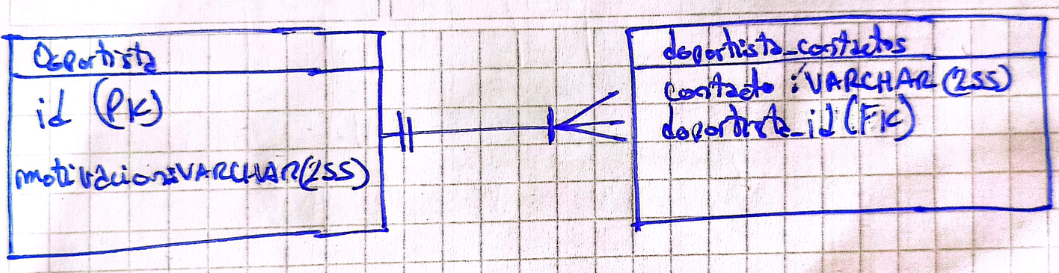 Deportista
id (PK)
motivacion:VARCHAR(255)
deportista_contactos
contacto :VARCHAR(255)
deportista_id(FK)